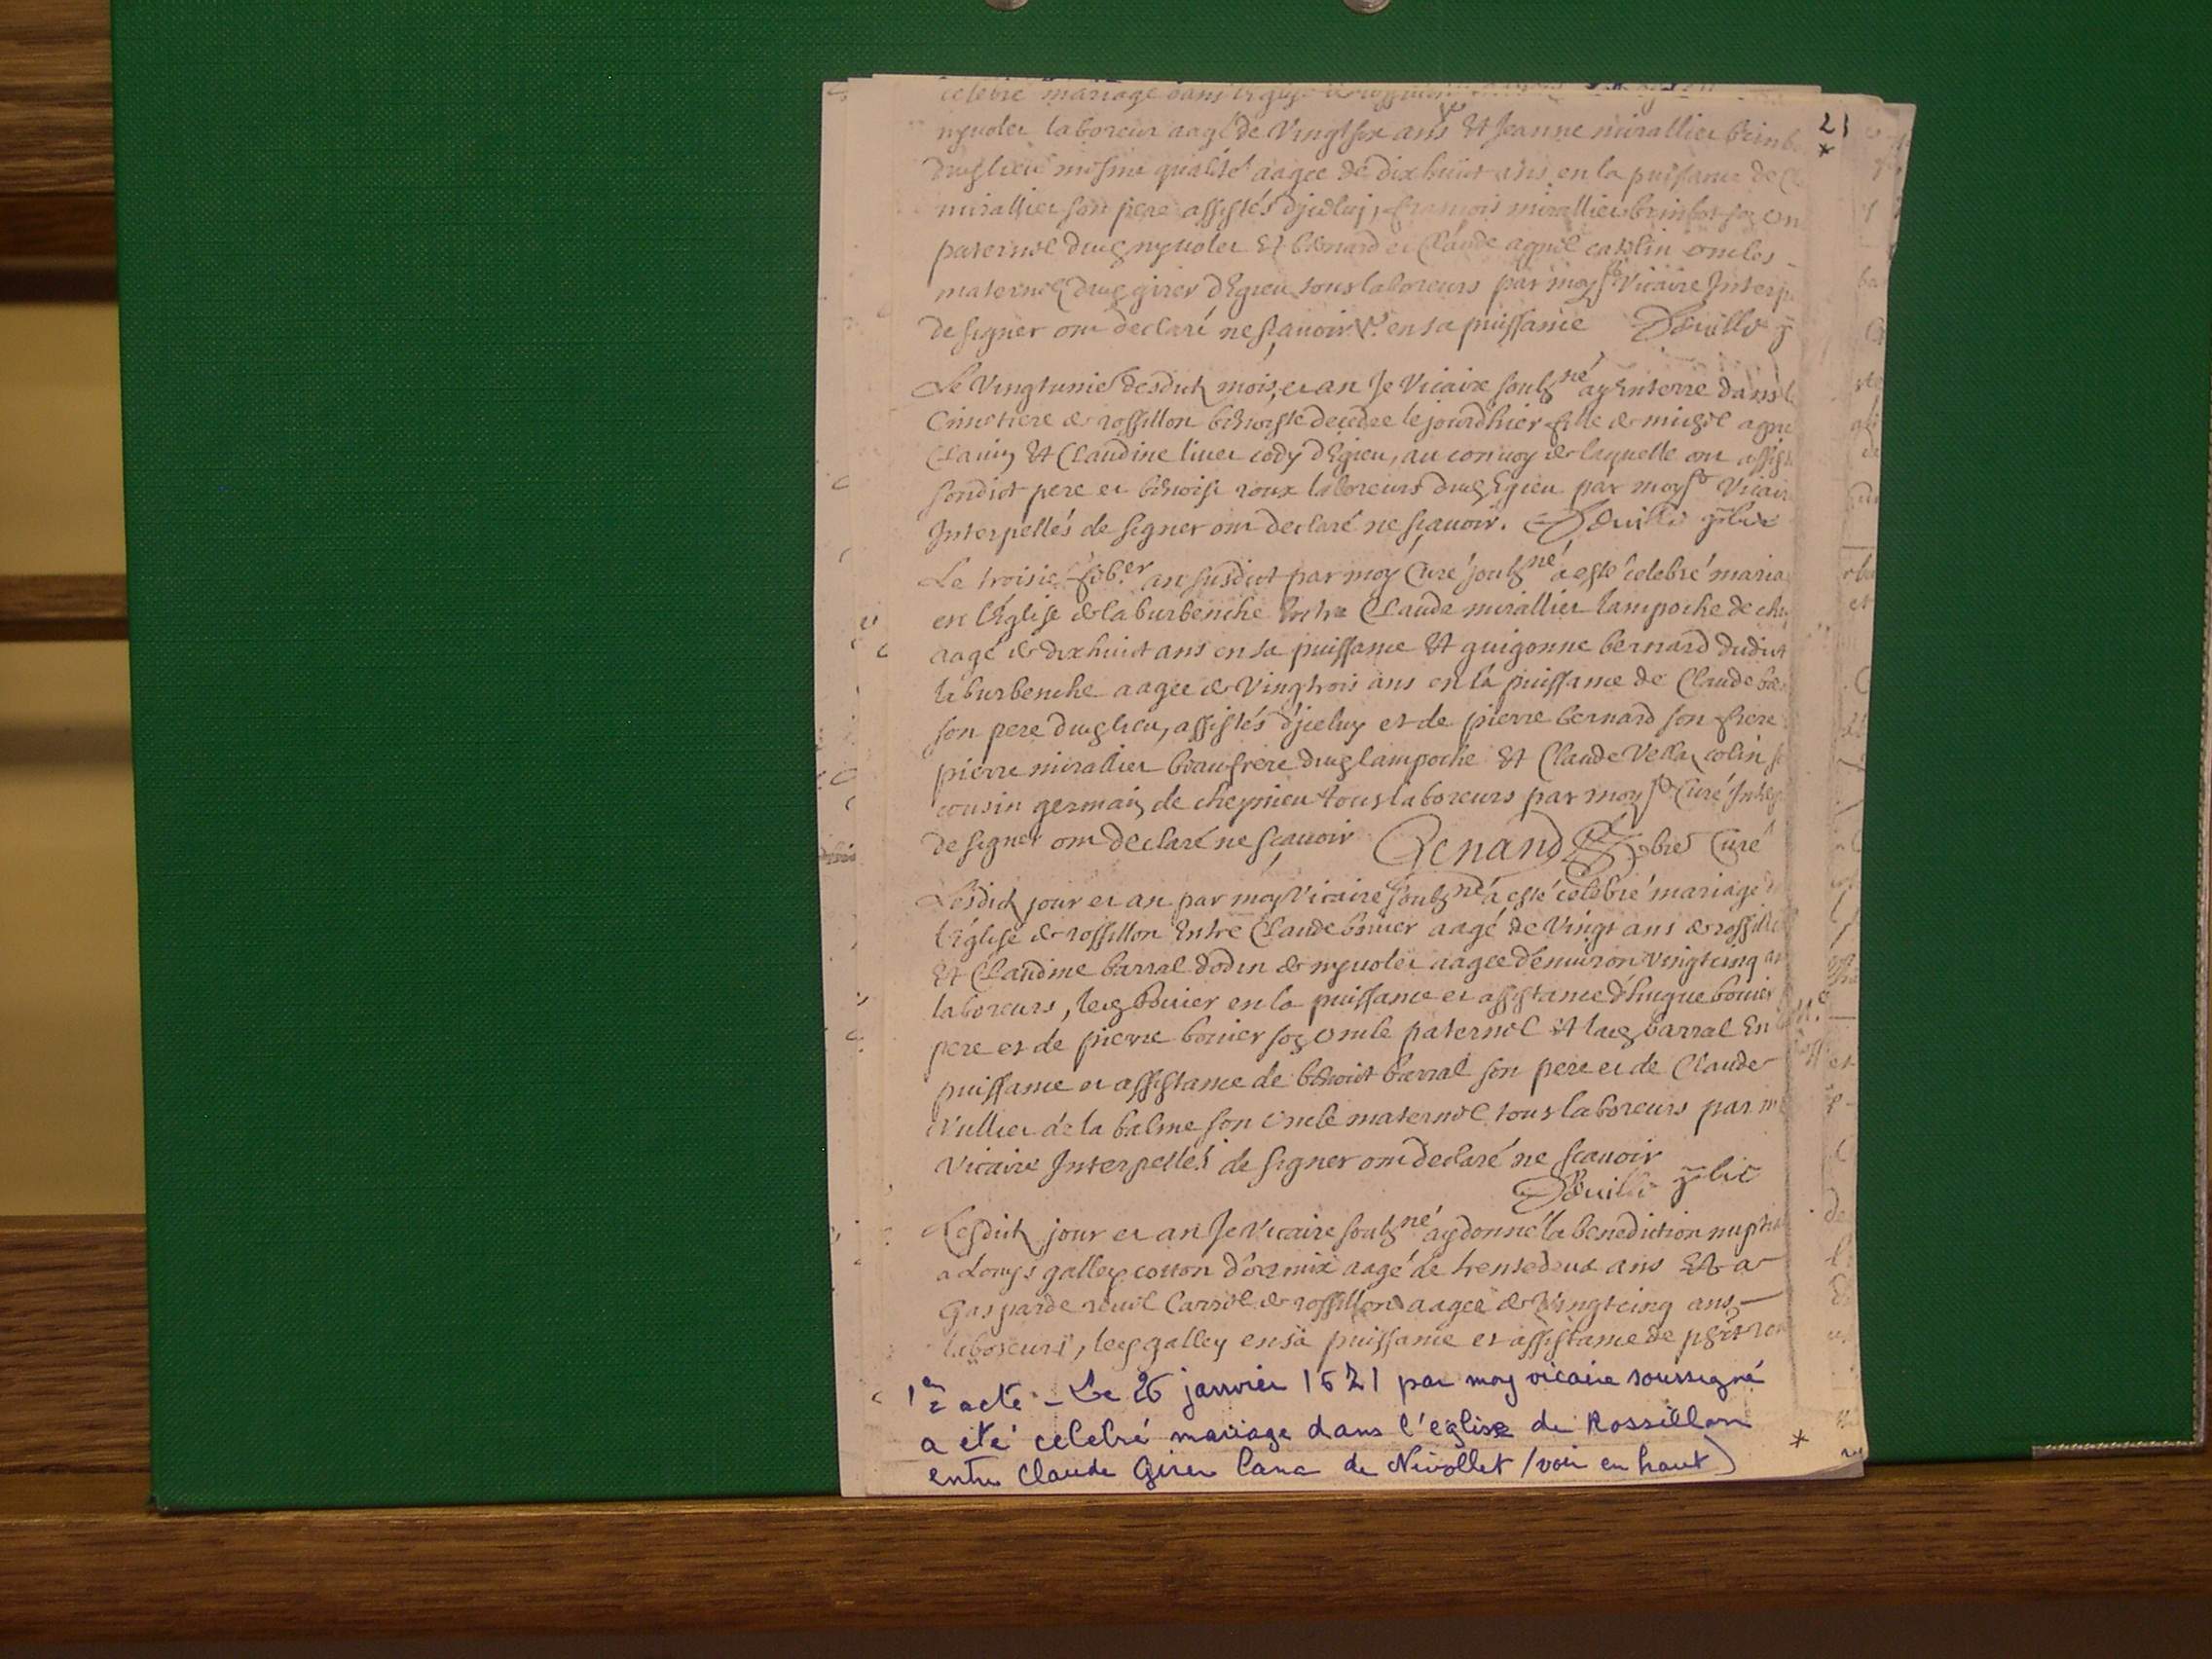 celebre mariage dans
nyuolet laboreur aagé de Vingt six ans Et Jeanne mirallier brinb
dud lieu mesme qualité aagee de dix huict ans en la puissance de
mirallier son pere assistés d'jceluy, francois mirallier brinbot son on
paternel dud nyuolet Et bernard et Claude agniel catelin oncles
maternelz dud girer d'Egieu tous laboreurs par moy sd Vicaire Interp
de signer ont declaré ne scauoir en sa puissance Deuille
Le Vingtunie desdictz mois et an Je Vicaire soubzné ay Enterré dans l
Cimetiere de rossillon benoiste decedee le jourdhier fille de michel agni
Clauin Et Claudine liuet cody d'Egieu, au conuoy de laquelle ont assist
sondict pere et benoist roux laboreurs dud Egieu par moy sd Vicair
Interpellés de signer ont declaré ne scauoir. Deuille
Le troisie feber an susdict par moy Curé soubzné a esté celebré maria
en l'Eglise de la burbenche Entre Claude mirallier lampoche de che
aagé de dix huict ans en sa puissance Et guigonne bernard dudict
la burbenche aagee de Vingtrois ans en la puissance de Claude be
son pere dud lieu, assistés d'jceluy et de pierre bernard son frere
pierre mirallier beaufrere dud lampoche Et Claude Vella colin
cousin germain de cheynieu tous laboreurs par moy sd Curé Interp
de signer ont declaré ne scauoir Renand pbre Curé
Lesdictz jour et an par moy Vicaire soubzné a esté celebré mariage d
l'église de rossillon Entre Claude bouier aagé de Vingt ans de rossill
Et Claudine barral dodin de nyuolet aagee d'enuiron vingtcinq an
laboreurs, led bouier en la puissance et assistance d'hugue bouier
pere et de pierre bouier son oncle paternel Et lad barral En
puissance et assistance de benoict barral son pere et de Claude
Vulliet de la balme son oncle maternel tous laboreurs par m
Vicaire Interpellés de signer ont declaré ne scauoir
Deuille
Lesdictz jour et an Je Vicaire soubzné ay donné la benediction nupti
a Louys galley cotton d'armix aagé de trentedeux ans Et a
Gasparde de rossillon aagee de Vingtcinq ans
laboreurs, led galley en sa puissance et assistance de
1er acte - Le 26 janvier 1621 par moy vicaire soussigné
a été célébré mariage dans l'église de Rossillon
entre Claude Girer Cana de Nivollet (voir en haut)